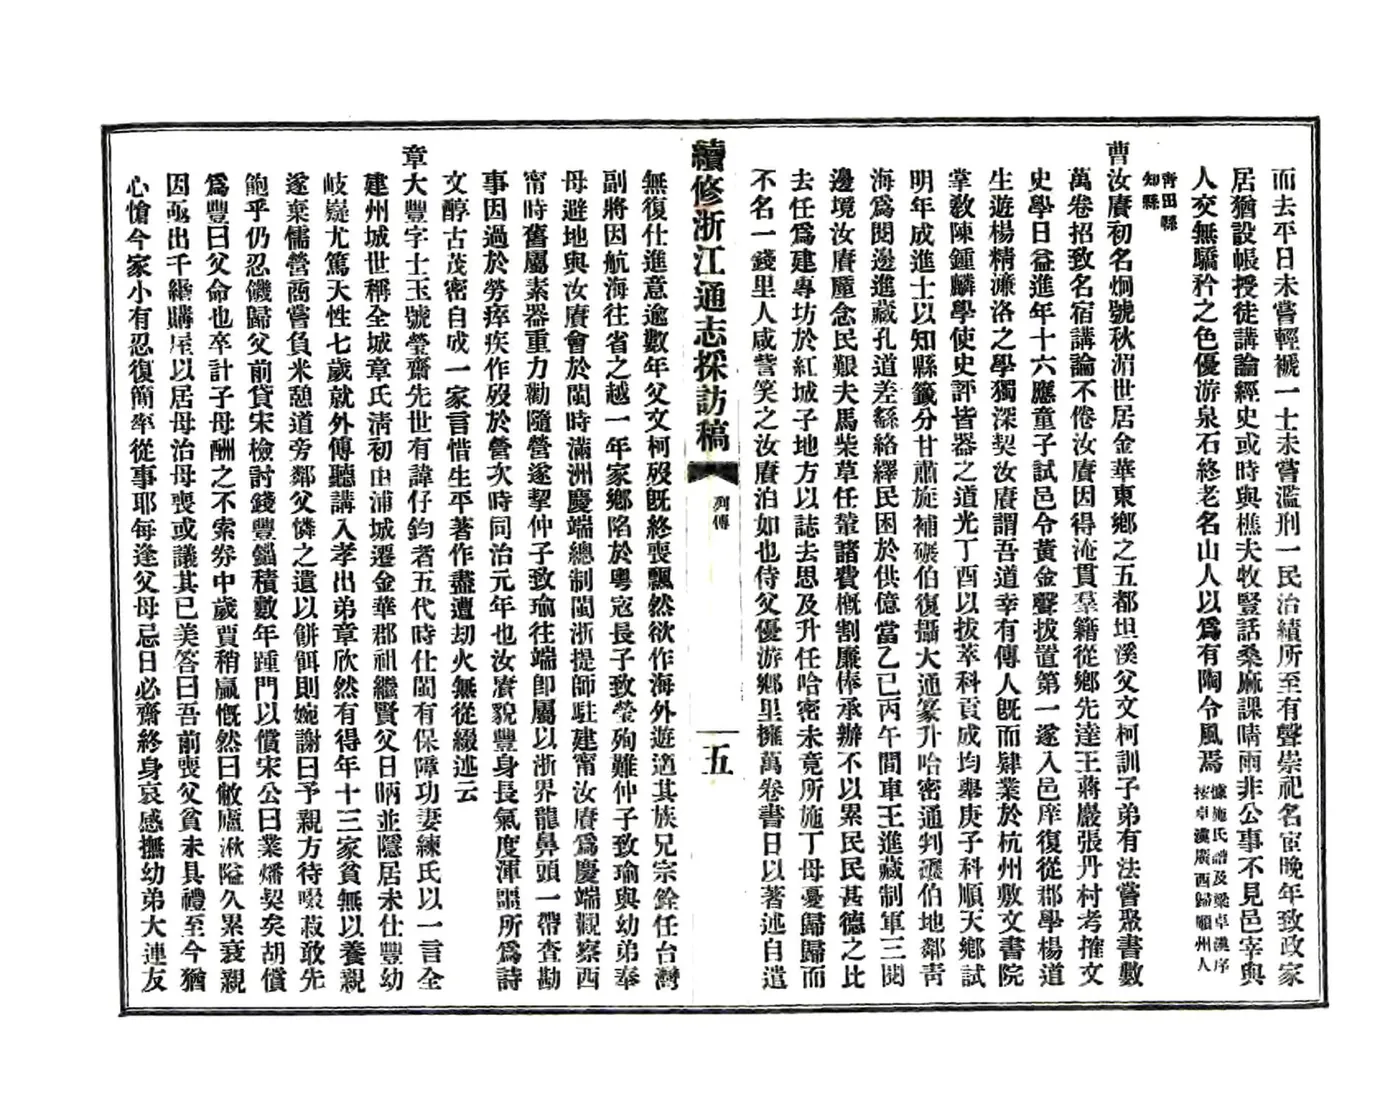 而去平日未嘗輕褫一士未嘗濫刑一民治績所至有聲崇祀名宦晚年致政家
居猶設帳授徒講論經史或時與樵夫牧豎話桑麻課晴雨非公事不見邑宰與
人交無驕矜之色優游泉石終老名山人以爲有陶令風焉據施氏譜及梁卓漢序
按卓漢廣西歸順州人
青田縣
知縣
曹汝賡初名炯號秋湄世居金華東鄉之五都坦溪父文柯訓子弟有法嘗聚書數
萬卷招致名宿講論不倦汝賡因得淹貫羣籍從鄉先達王蔣巖張丹村考搉文
史學日益進年十六應童子試邑令黃金聲拔置第一遂入邑庠復從郡學楊道
生遊楊精濂洛之學獨深契汝賡謂吾道幸有傳人旣而肄業於杭州敷文書院
掌敎陳鍾麟學使史評皆器之道光丁酉以拔萃科貢成均舉庚子科順天鄉試
明年成進士以知縣籤分甘肅旋補碾伯復攝大通篆升哈密通判碾伯地鄰靑
海爲閱邊進藏孔道差繇絡繹民困於供億當乙巳丙午間車王進藏制軍三閱
邊境汝賡廑念民艱夫馬柴草任輦諸費概割廉俸承辦不以累民民甚德之比
去任爲建專坊於紅城子地方以誌去思及升任哈密未竟所施丁母憂歸歸而
不名一錢里人咸訾笑之汝賡泊如也侍父優游鄉里擁萬卷書日以著述自遣
續修浙江通志採訪稿
列傳
五
無復仕進意逾數年父文柯歿旣終喪飄然欲作海外遊適其族兄宗銓任台灣
副將因航海往省之越一年家鄉陷於粵寇長子致瑩殉難仲子致瑜與幼弟奉
母避地與汝賡會於閩時滿洲慶端總制閩浙提師駐建甯汝賡爲慶端觀察西
甯時舊屬素器重力勸隨營遂挈仲子致瑜往端卽屬以浙界龍鼻頭一帶查勘
事因過於勞瘁疾作歿於營次時同治元年也汝賡貌豐身長氣度渾噩所爲詩
文醇古茂密自成一家言惜生平著作盡遭劫火無從綴述云
章大豐字士玉號瑩齋先世有諱仔鈞者五代時仕閩有保障功妻練氏以一言全
建州城世稱全城章氏淸初由浦城遷金華郡祖繼賢父日昞並隱居未仕豐幼
岐嶷尤篤天性七歲就外傅聽講入孝出弟章欣然有得年十三家貧無以養親
遂棄儒營商嘗負米憩道旁鄰父憐之遺以餅餌則婉謝曰予親方待啜菽敢先
飽乎仍忍饑歸父前貸宋檢討錢豐錙積數年踵門以償宋公曰業燔契矣胡償
爲豐曰父命也卒計子母酬之不索券中歲賈稍贏慨然曰敝廬湫隘久累衰親
因亟出千緡購屋以居母治母喪或議其已美答曰吾前喪父貧未具禮至今猶
心愴今家小有忍復簡率從事耶每逢父母忌日必齋終身哀感撫幼弟大連友